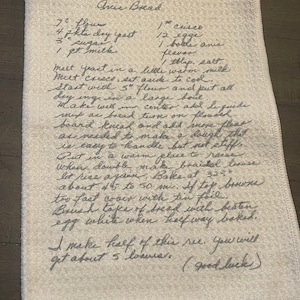 Anis Bread
7 c flour 1 c crisco
4 pkts dry yeast 12 eggs
3 c sugar 1 bottle anis
1 pt milk flavor
1 tblsp salt
Melt yeast in a little warm milk
Melt crisco, set aside to cool
Start with 5 c flour and put all
dry ing in a large bowl
Make well in center add liquids
mix as bread turn on floured
board knead and add more flour
as needed to make a dough that
is easy to handle but not stiff.
Put in a warm place to raise
when double make braided loaves
let rise again. Bake at 325°
about 45 to 50 min. If top browns
too fast cover with tin foil
Brush tops of bread with beaten
egg white when half way baked.
I make half of this rec. You will
get about 5 loaves.
(good luck)